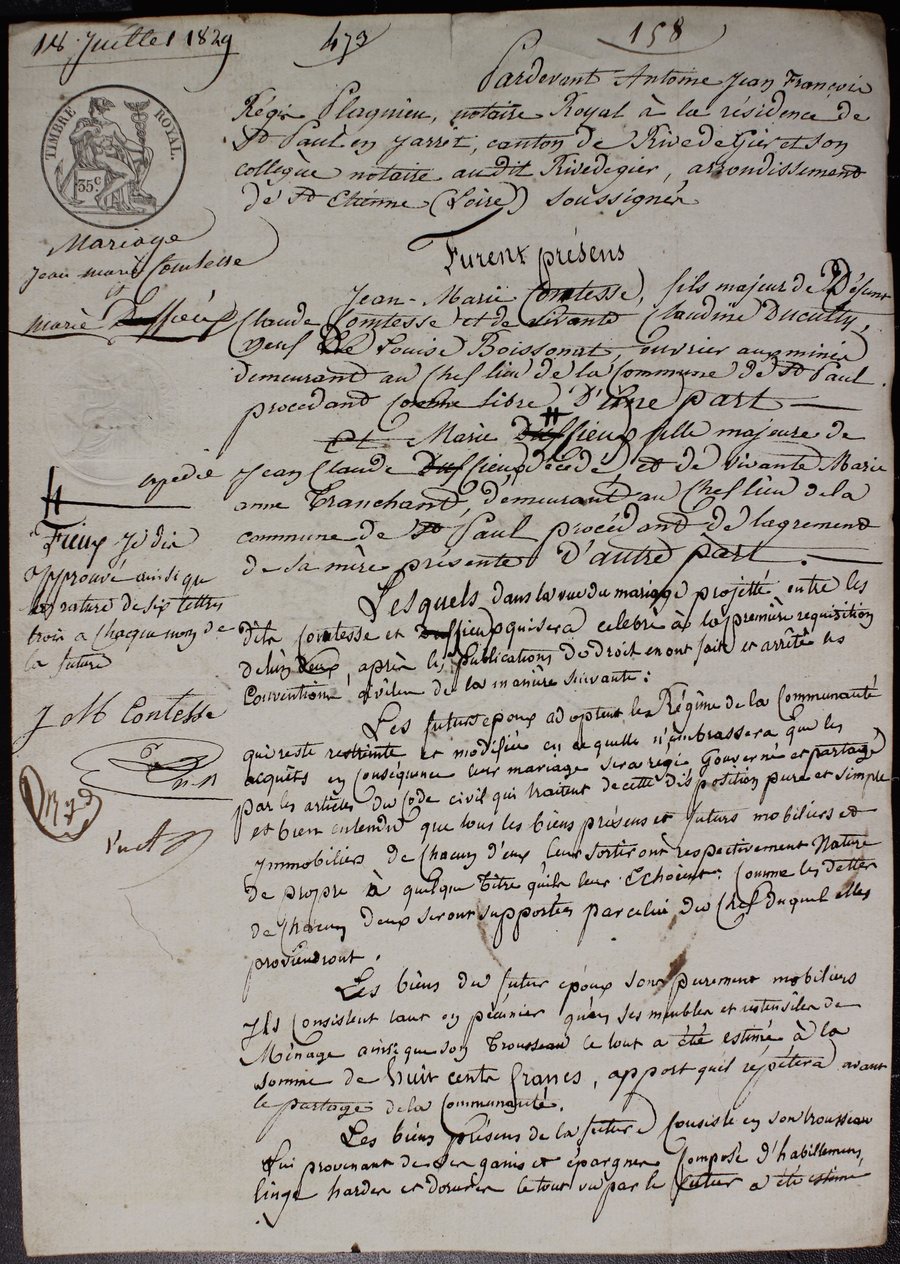 18 Juillet 1829
473
158
Pardevant Antoine Jean François
Régis Plagnieu, notaire Royal à la résidence de
St Paul en Jarret, canton de Rive de Gier et son
collègue notaire audit Rivedegier, arrondissement
de St Etienne (Loire) soussignés
TIMBRE ROYAL
35c
Mariage
Jean marie Comtesse
et
marie fieux
Furent présens
Jean-Marie Comtesse, fils majeur de Défunt
Claude Comtesse et de vivante Claudine Ducurty,
veuf de Louise Boissonat, ouvrier aux mines
demeurant au Cheflieu de la Commune de St Paul
procédant comme libre D'une part
Et Marie Duffieux fille majeure de
Jean Claude Duffieux, décédé, et de vivante Marie
anne Tranchant, demeurant au Cheflieu de la
commune de St Paul procédant de l'agrement
de sa mère présente D'autre part.
expédié
Fieux Je dis
approuvé ainsi que
la rature de six lettres
trois a chaque nom de
la future
J M Contesse
Lesquels dans la vue du mariage projetté entre les
dits Comtesse et Duffieux qui sera celebré à la première requisition
de l'un deux, après les publications de droit en ont fait et arrêté les
Conventions civiles de la manière suivante :
Les futurs epoux adoptent le Régime de la Communauté
qui reste restreinte et modifiée en ce quelle n'embrassera que les
acquêts en Conséquence leur mariage sera regi Gouverné et partagé
par les articles du Code civil qui traitent de cette disposition pure et simple
et bien entendu que tous les biens présens et futurs mobiliers et
Immobiliers de Chacun d'eux leur sortiront respectivement Nature
de propre à quelque titre quils leur Echoient. Comme les dettes
de Chacun deux seront supportées par celui du Chef duquel elles
proviendront.
Les biens du futur époux sont purement mobiliers
Ils Consistent tant en pécunier qu'en ses meubles et ustensiles de
Ménage ainsi que son Trousseau le tout a été estimé à la
somme de huit cents francs, apport quil répétera avant
le partage de la Communauté.
Les biens présens de la future Consiste en son trousseau
Lui provenant de ses gains et épargnes Composé d'habillemens,
linge hardes et dorures le tout vu par le futur a été estimé